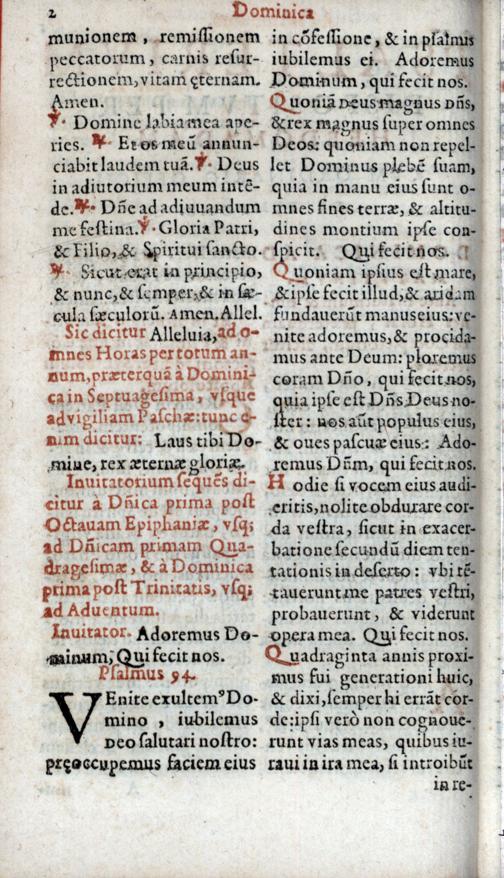 2 Dominica
munionem, remissionem
peccatorum, carnis resur-
rectionem, vitam ęternam.
Amen.
℣. Domine labia mea ape-
ries. ℟. Et os meũ annun-
ciabit laudem tuã. ℣. Deus
in adiutorium meum intẽ-
de. ℟. Dñe ad adiuuandum
me festina. ℣. Gloria Patri,
& Filio, & Spiritui sancto.
℟. Sicut erat in principio,
& nunc, & semper, & in sæ-
cula sæculorũ. Amen. Allel.
Sic dicitur Alleluia, ad o-
mnes Horas per totum an-
num, præterquã à Domini-
ca in Septuagesima, vsque
ad vigiliam Paschæ: tunc e-
nim dicitur: Laus tibi Do-
mine, rex æternæ gloriæ.
Inuitatorium sequẽs di-
citur à Dñica prima post
Octauam Epiphaniæ, vsq;
ad Dñicam primam Qua-
dragesimæ, & à Dominica
prima post Trinitatis, vsq;
ad Aduentum.
Inuitator. Adoremus Do-
minum, Qui fecit nos.
Psalmus 94.
VEnite exultemꝰ Do-
mino, iubilemus
Deo salutari nostro:
pręoccupemus faciem eius
in cõfessione, & in psalmis
iubilemus ei. Adoremus
Dominum, qui fecit nos.
Quoniã Deus magnus Dñs,
& rex magnus super omnes
Deos: quoniam non repel-
let Dominus plebẽ suam,
quia in manu eius sunt o-
mnes fines terræ, & altitu-
dines montium ipse con-
spicit. Qui fecit nos.
Quoniam ipsius est mare,
& ipse fecit illud, & aridam
fundauerũt manus eius: ve-
nite adoremus, & procida-
mus ante Deum: ploremus
coram Dño, qui fecit nos,
quia ipse est Dñs Deus no-
ster: nos aũt populus eius,
& oues pascuæ eius: Ado-
remus Dñm, qui fecit nos.
Hodie si vocem eius audi-
eritis, nolite obdurare cor-
da vestra, sicut in exacer-
batione secundũ diem ten-
tationis in deserto: vbi tẽ-
tauerunt me patres vestri,
probauerunt, & viderunt
opera mea. Qui fecit nos.
Quadraginta annis proxi-
mus fui generationi huic,
& dixi, semper hi errãt cor-
de: ipsi verò non cognoue-
runt vias meas, quibus iu-
raui in ira mea, si introibũt
in re-